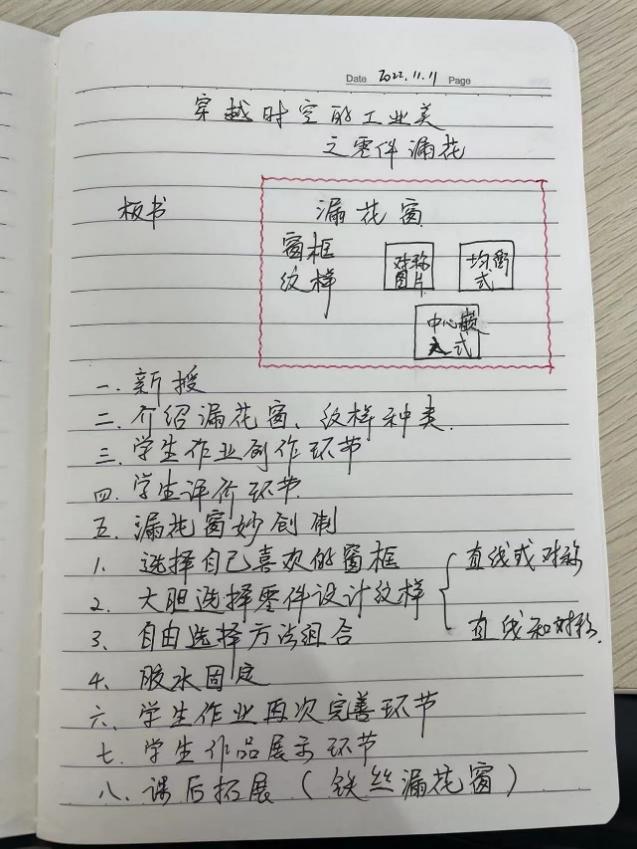 Date 2022.11.11 Page
穿越时空的工业美
之零件漏花
板书
漏花窗
窗框
纹样
对称
图片
均衡
式
中心
式
一.新授
二.介绍漏花窗、纹样种类.
三.学生作业创作环节
四.学生评价环节.
五.漏花窗妙创制
1.选择自己喜欢的窗框
直线或对称
2.大胆选择零件设计纹样
3、自由选择方法组合
直线和对称.
4、胶水固定
六、学生作业再次完善环节
七.学生作品展示环节
八.课后拓展(铁丝漏花窗)